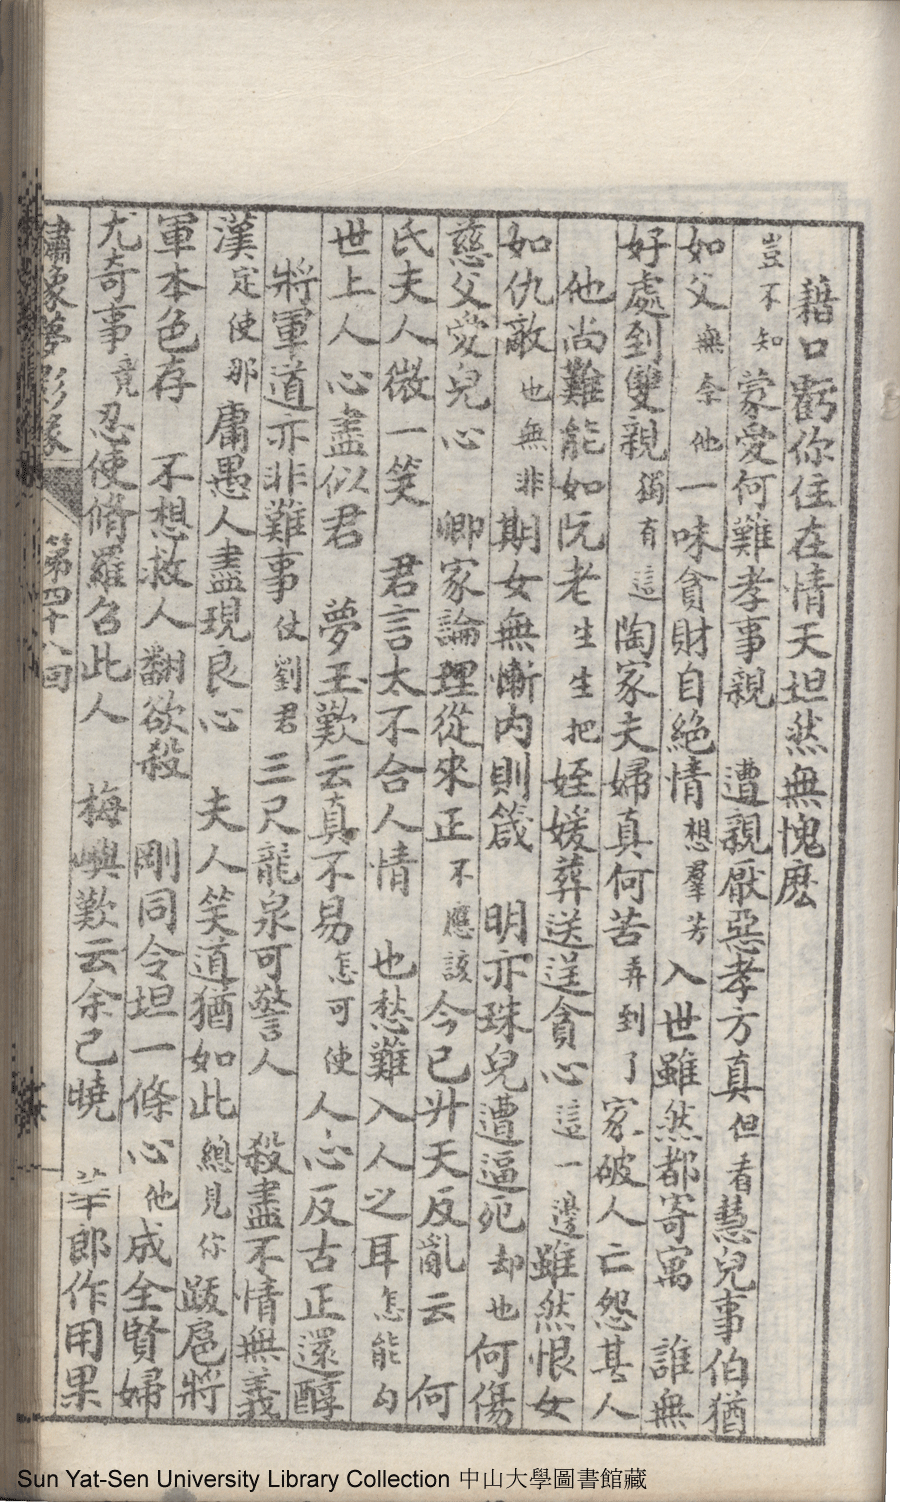 藉口虧你住在情天坦然無愧麽
豈不知蒙愛何難孝事親　遭親厭惡孝方真但看慧兒事伯猶
如父無奈他一味貪財自絶情想羣芳入世雖然都寄寓　誰無
好處到雙親獨有這陶家夫婦真何苦弄到了家破人亡怨甚人
他尚難能如阮老生生把姪媛葬送逞貪心這一邊雖然恨女
如仇敵也無非期女無慚内則箴　明亦珠兒遭逼死却也何傷
慈父愛兒心　卿家論理從來正不應該今已升天反亂云　何
氏夫人微一笑　君言太不合人情　也愁難入人之耳怎能勾
世上人心盡似君　夢玉歎云真不易怎可使人心反古正還醇
將軍道亦非難事仗劉君三尺龍泉可警人　殺盡不情無義
漢定使那庸愚人盡現良心　夫人笑道猶如此總見你跋扈將
軍本色存　不想救人翻欲殺　剛同令坦一條心他成全賢婦
尤奇事竟忍使脩羅名此人　梅嶼歎云余已曉　華郎作用果
繡像夢影緣　第四十八回
Sun Yat-Sen University Library Collection 中山大學圖書館藏